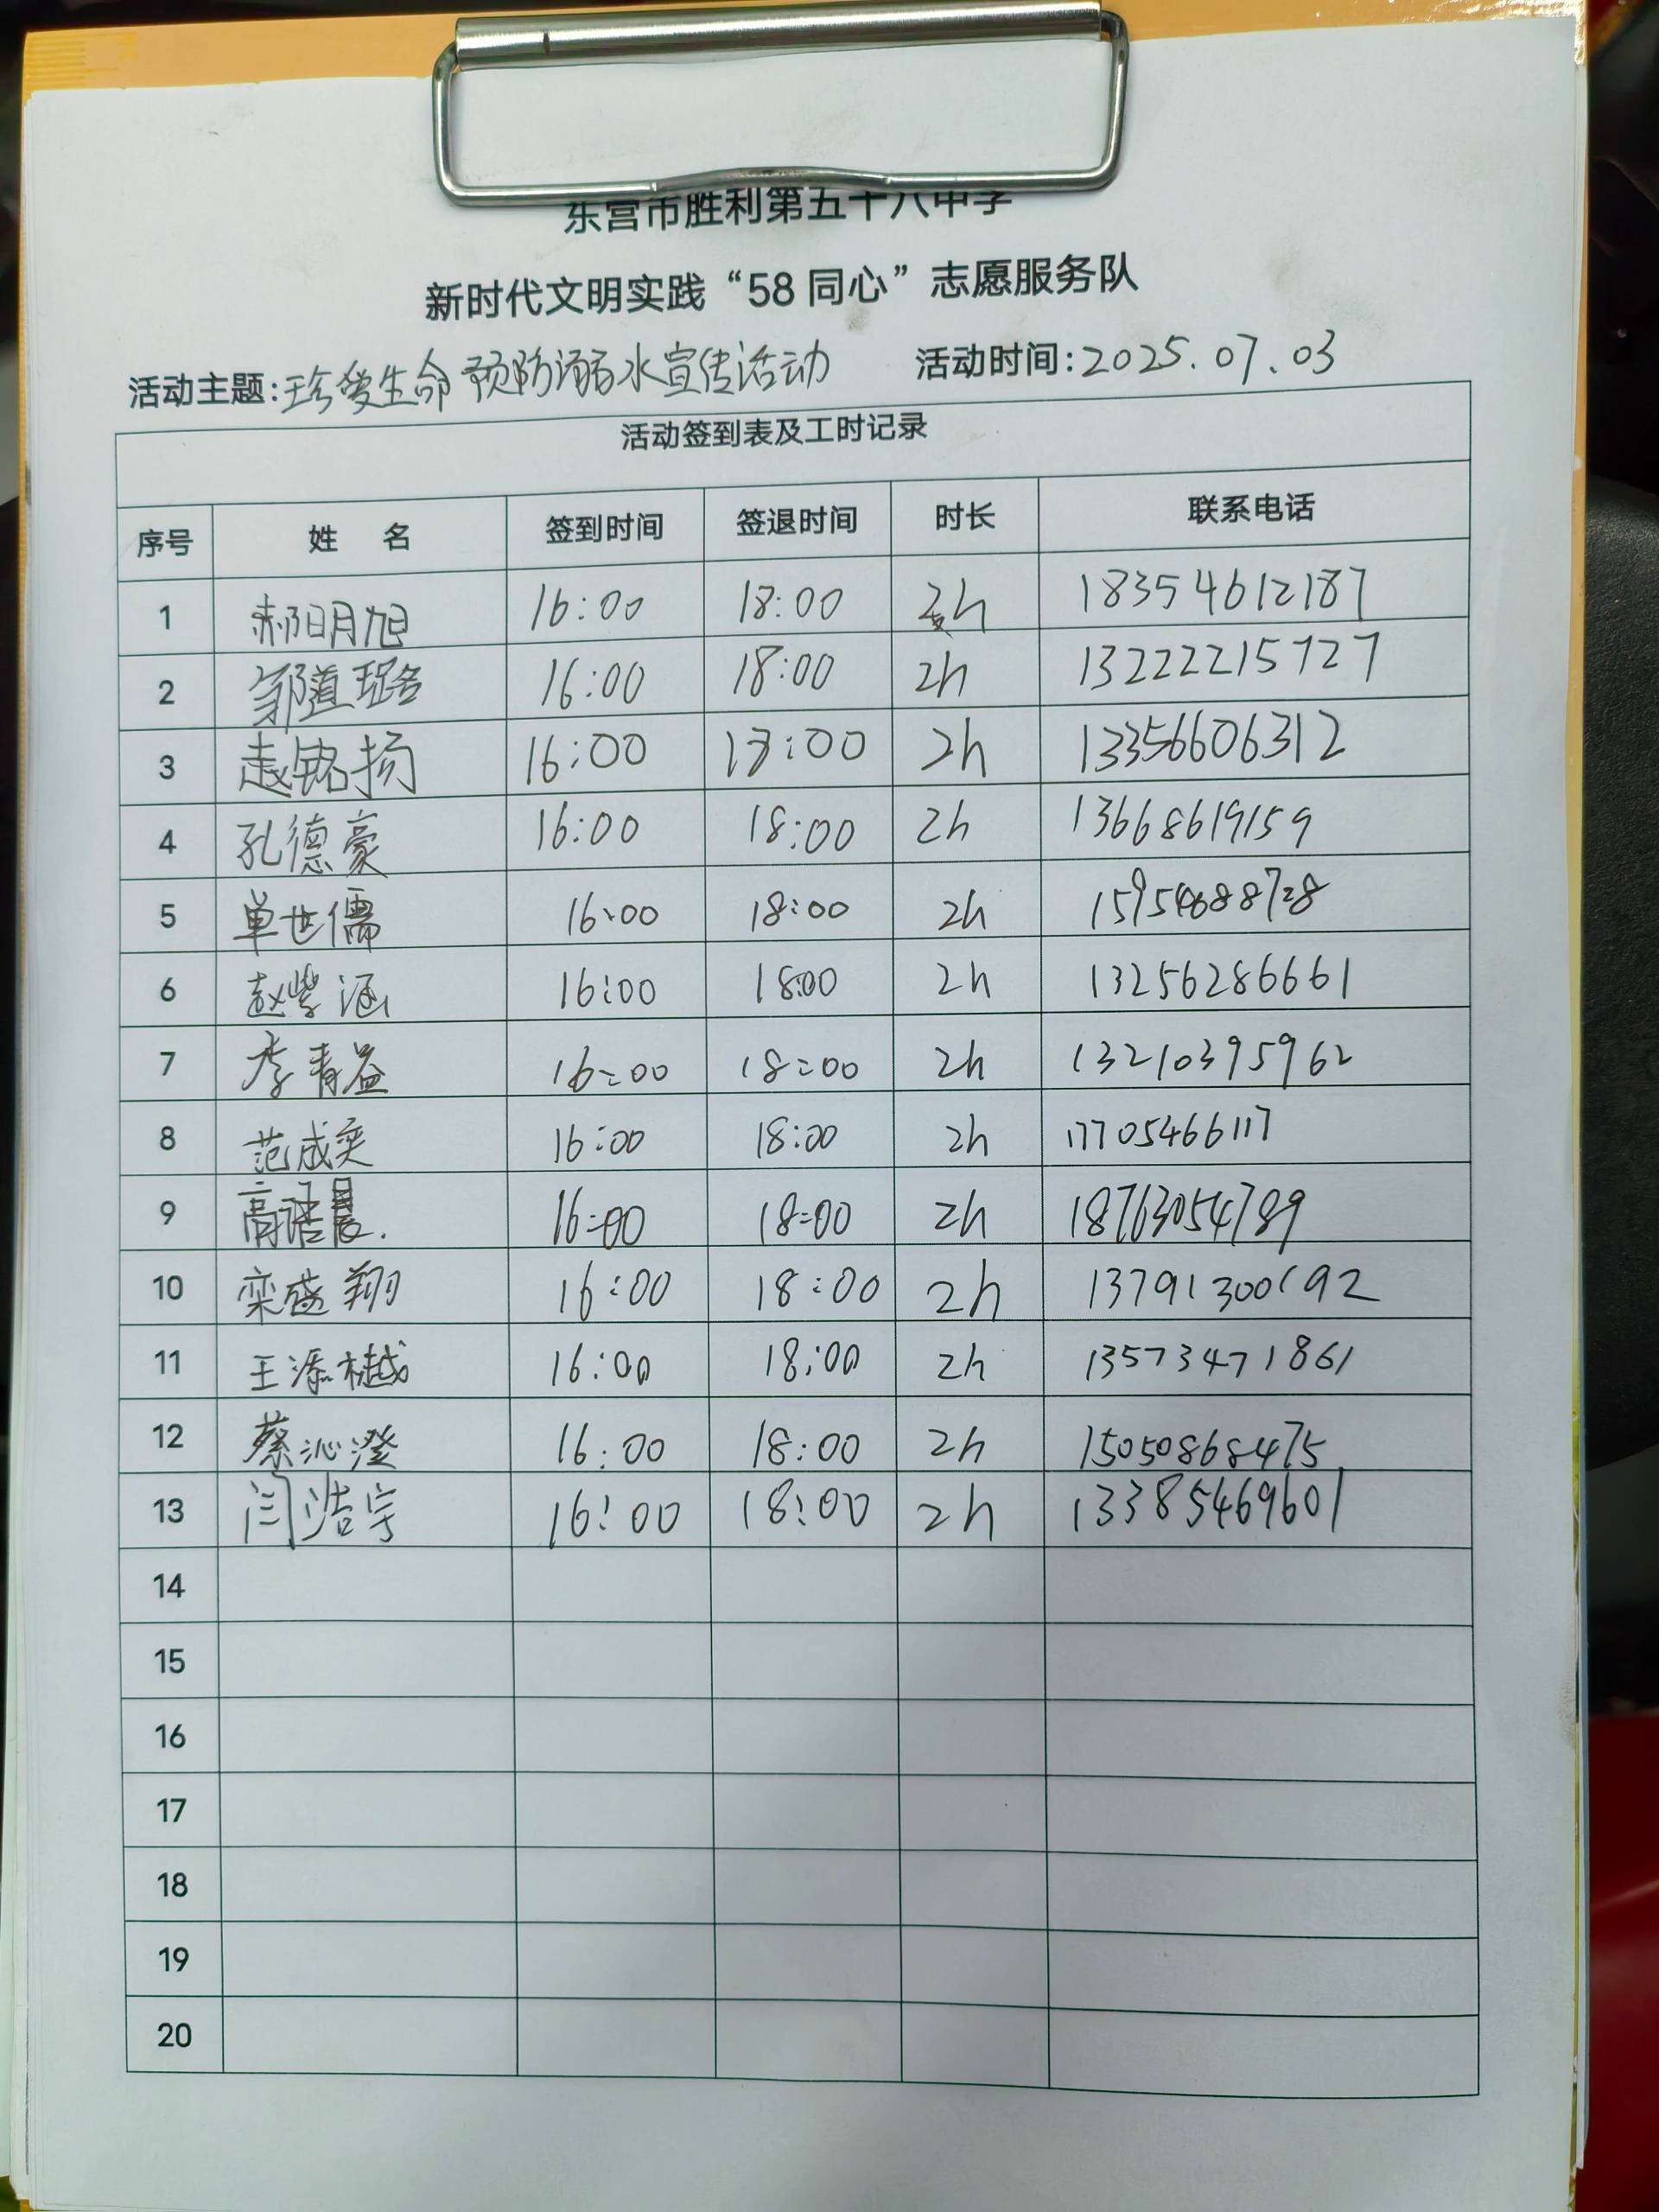 东营市胜利第五十八中学
新时代文明实践“58同心”志愿服务队
活动主题:珍爱生命 预防溺水宣传活动 活动时间:2025.07.03
活动签到表及工时记录
序号 姓 名 签到时间 签退时间 时长 联系电话
1 郝明旭 16:00 18:00 2h 18354612187
2 邹道璐 16:00 18:00 2h 13222215727
3 赵铭扬 16:00 18:00 2h 13356606312
4 孔德豪 16:00 18:00 2h 13668619159
5 单世儒 16:00 18:00 2h 15954688728
6 赵紫涵 16:00 18:00 2h 13256286661
7 李青益 16:00 18:00 2h 13210395962
8 范成奕 16:00 18:00 2h 17705466117
9 高诺晨. 16:00 18:00 2h 18763054789
10 栾盛翔 16:00 18:00 2h 13791300192
11 王添樾 16:00 18:00 2h 13573471861
12 蔡沁澄 16:00 18:00 2h 15050868475
13 闫浩宇 16:00 18:00 2h 13385469601
14
15
16
17
18
19
20